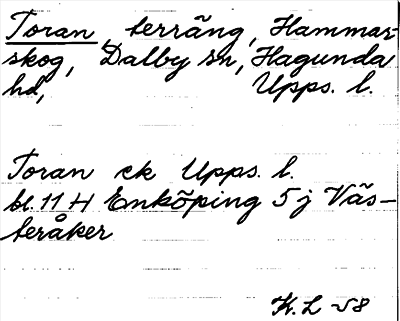 Toran, terräng, Hammar-
skog, Dalby sn, Hagunda
hd, Upps. l.
Toran ek Upps. l.
bl. 11 H Enköping 5 j Väs-
teråker
K. L -58